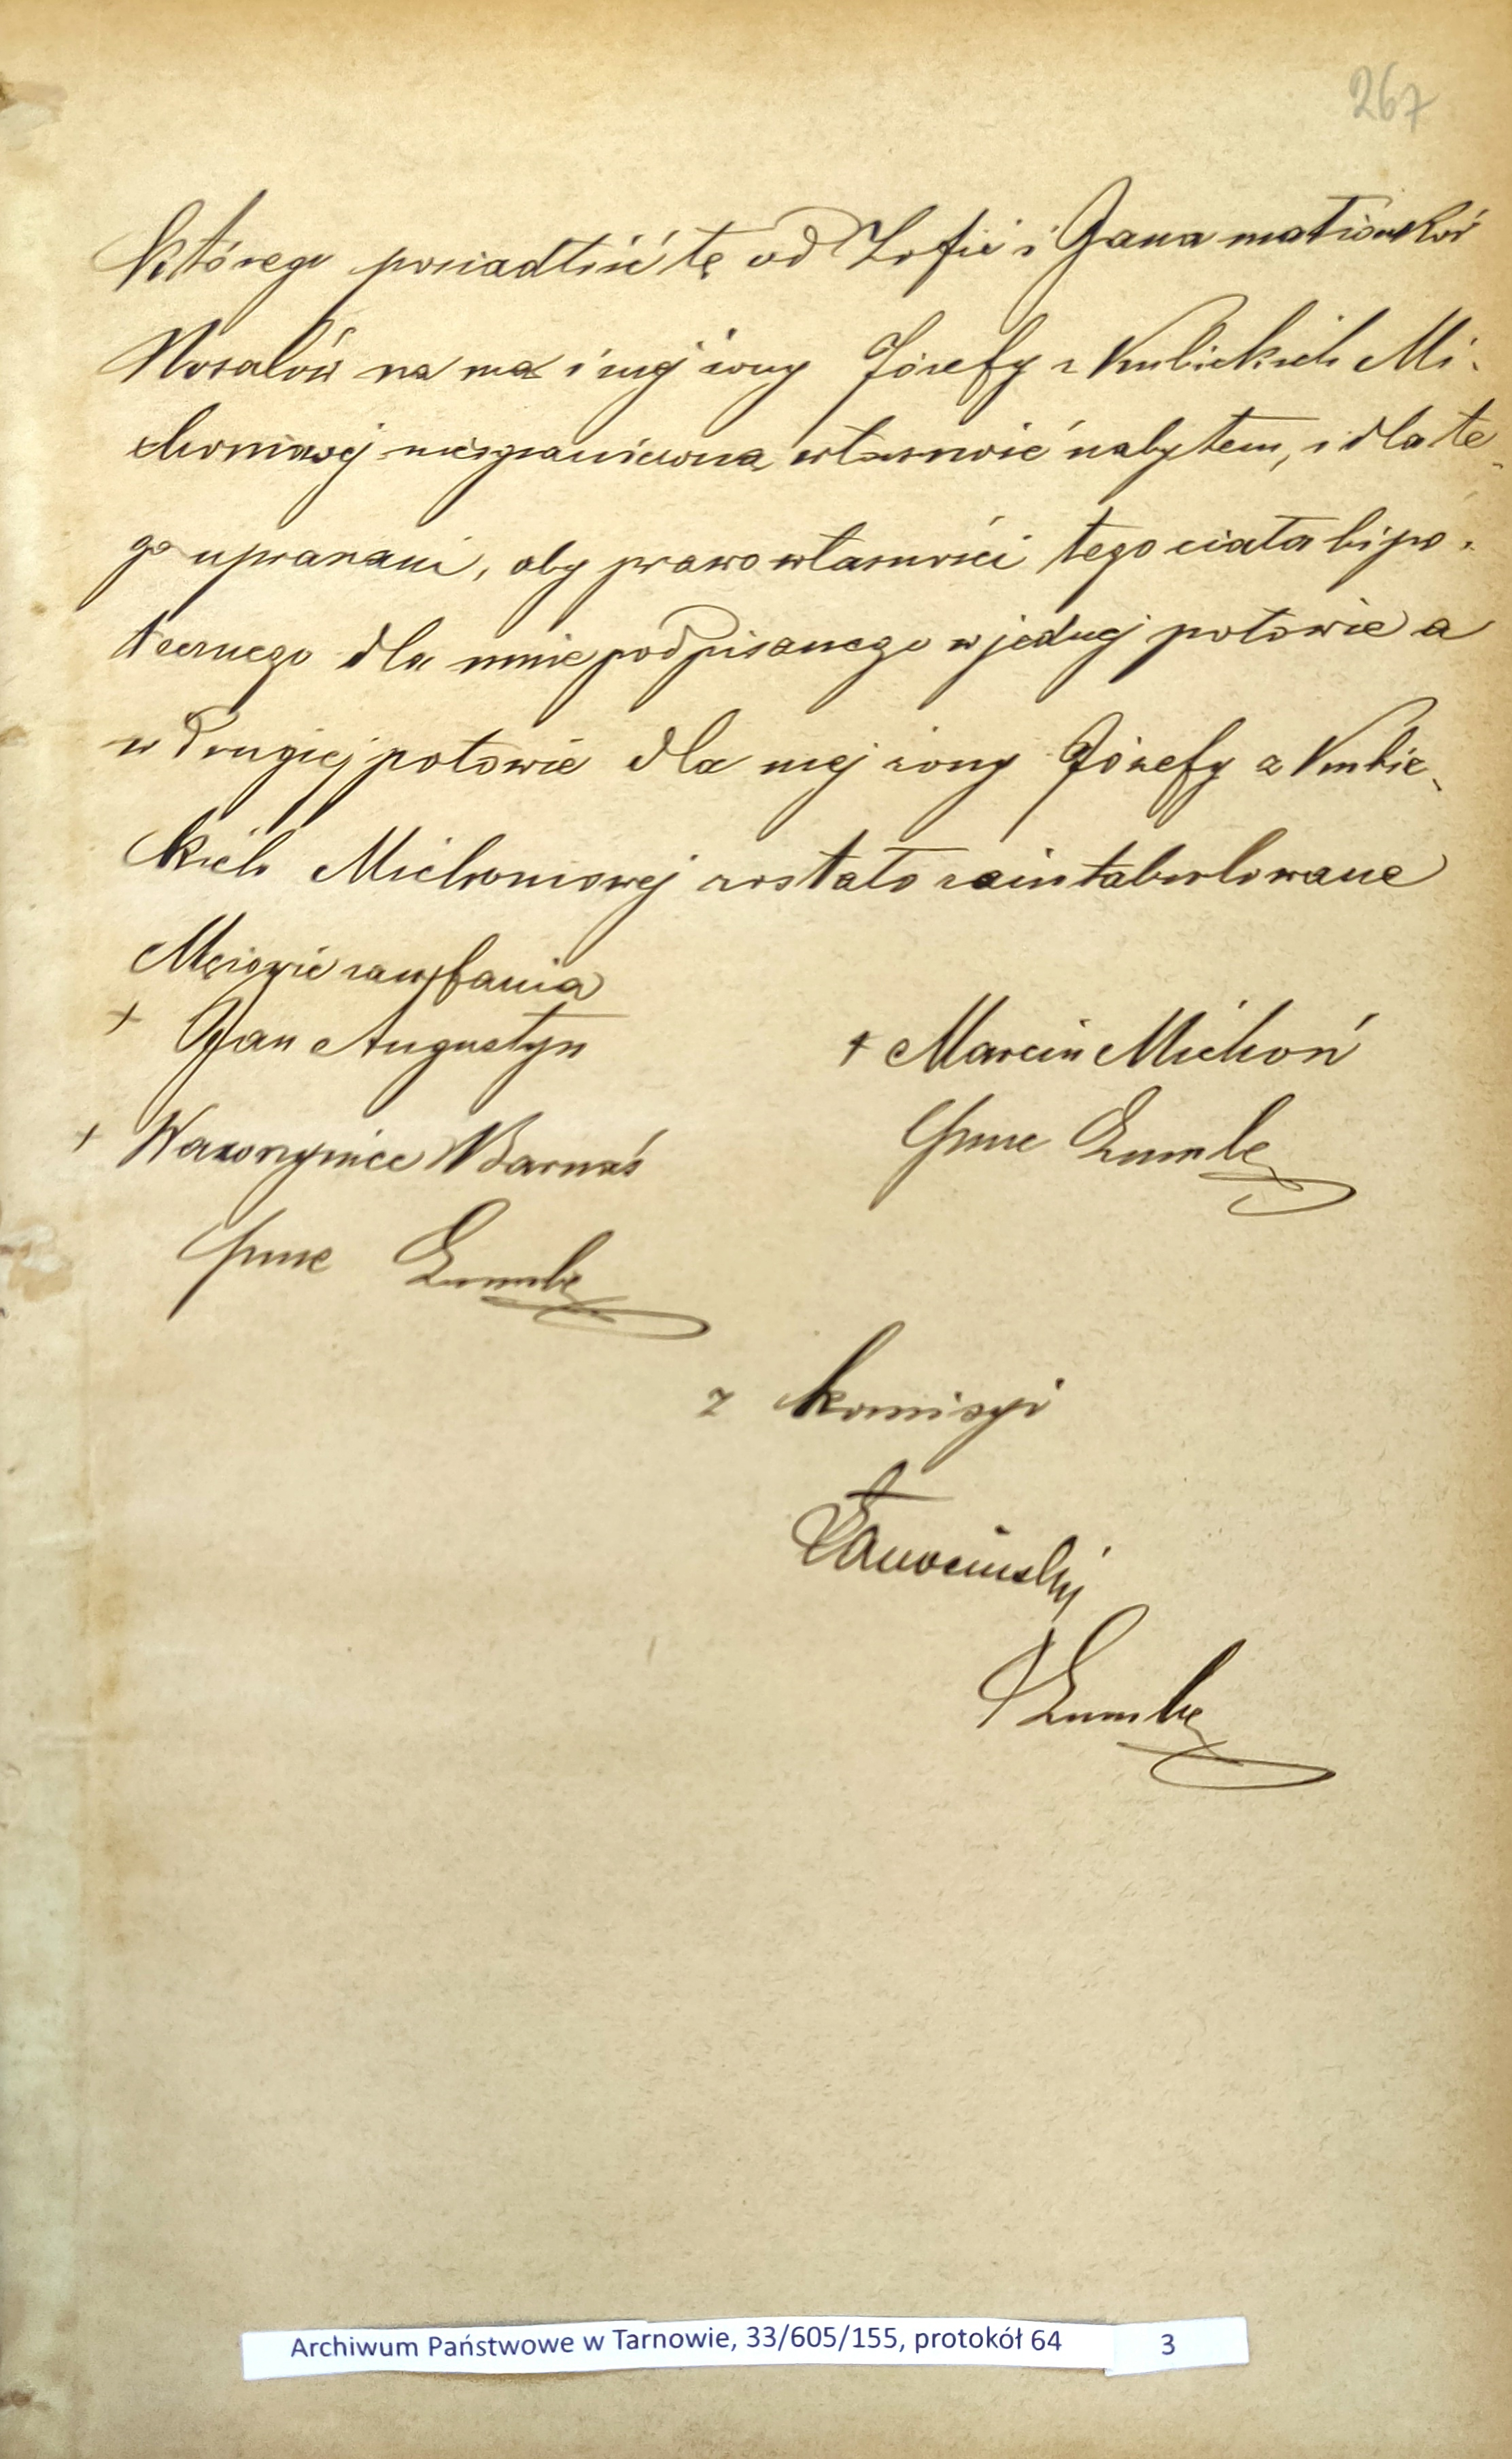 267
którego posiadłość tę od Zofii i Jana małżonków
Nosalów na ma i mej żony Józefy z Kubickich Mi-
choniowej nieograniczoną własność nabyłem, i dla te-
go upraszam, aby prawo własności tego ciała hipo-
tecznego dla mnie podpisanego w jednej połowie a
w drugiej połowie dla mej żony Józefy z Kubic-
kich Michoniowej zostało zaintabulowane
Mężowie zaufania
+ Jan Augustyn
+ Marcin Michoń
+ Wawrzyniec Barnaś
z komisyi
Archiwum Państwowe w Tarnowie, 33/605/155, protokół 64 3